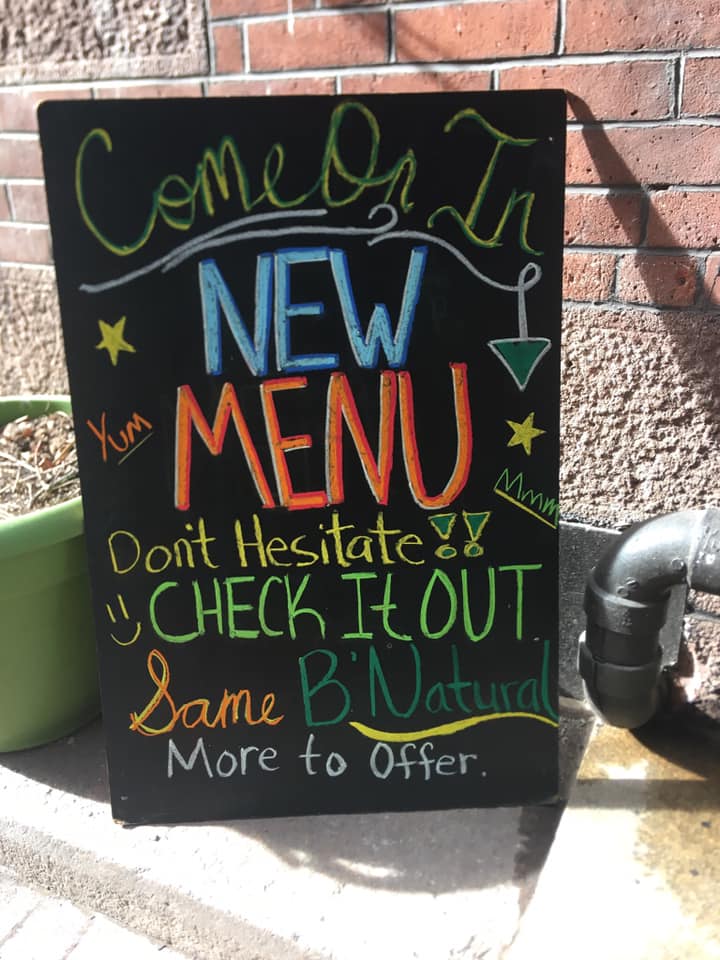 Come On In
NEW
MENU
Yum
Mmm
Don't Hesitate!!
CHECK It OUT
Same B'Natural
More to Offer.